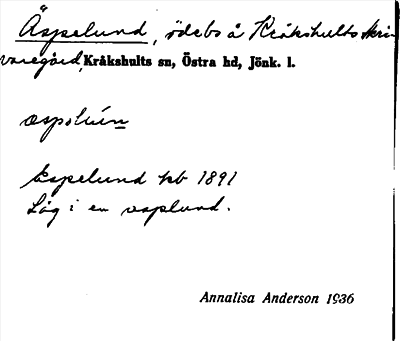 Äspelund, ödebs å Kråkshults skri
varegård, Kråkshults sn, Östra hd, Jönk. l.
Espelund kb 1891
Låg i en asplund.
Annalisa Anderson 1936